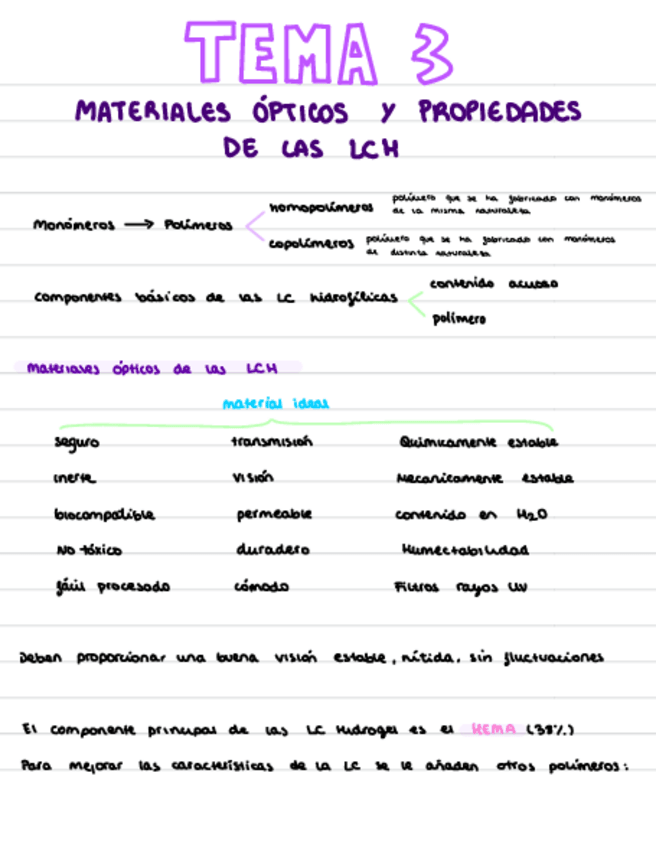 TEMA 3
MATERIALES ÓPTICOS Y PROPIEDADES
DE LAS LCH
Monómeros → Polímeros
homopolímeros
polímero que se ha fabricado con monómeros
de la misma naturaleza
copolímeros
polímero que se ha fabricado con monómeros
de distinta naturaleza
componentes básicos de las LC hidrofílicas
contenido acuoso
polímero
materiales ópticos de las LCH
material ideal
seguro transmisión Químicamente estable
inerte visión Mecanicamente estable
biocompatible permeable contenido en H2O
No tóxico duradero Humectabilidad
fácil procesado cómodo Filtros rayos UV
Deben proporcionar una buena visión estable, nítida, sin fluctuaciones
El componente principal de las LC Hidrogel es el HEMA (38%)
Para mejorar las características de la LC se le añaden otros polímeros: